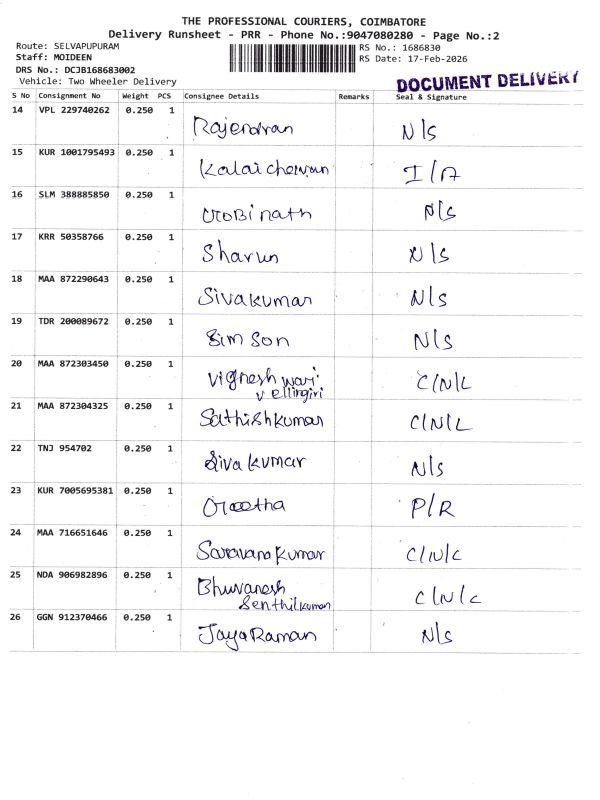 THE PROFESSIONAL COURIERS, COIMBATORE
Delivery Runsheet - PRR - Phone No.:9047080280 - Page No.:2
Route: SELVAPUPURAM
RS No.: 1686830
Staff: MOIDEEN
RS Date: 17-Feb-2026
DRS No.: DCJB168683002
Vehicle: Two Wheeler Delivery
DOCUMENT DELIVERY
S No Consignment No Weight PCS Consignee Details Remarks Seal & Signature
14 VPL 229740262 0.250 1 Rajendran N/S
15 KUR 1001795493 0.250 1 I/A
16 SLM 388885850 0.250 1 N/S
17 KRR 50358766 0.250 1 Sharun N/S
18 MAA 872290643 0.250 1 Sivakumar N/S
19 TDR 200089672 0.250 1 Simson N/S
20 MAA 872303450 0.250 1 Vignesh wari C/N/L
vellingiri
21 MAA 872304325 0.250 1 Sathishkumar C/N/L
22 TNJ 954702 0.250 1 Siva kumar N/S
23 KUR 7005695381 0.250 1 P/R
24 MAA 716651646 0.250 1 Saravana Kumar C/N/C
25 NDA 906982896 0.250 1 Bhuvanesh C/N/C
Senthilkumar
26 GGN 912370466 0.250 1 JayaRaman N/S